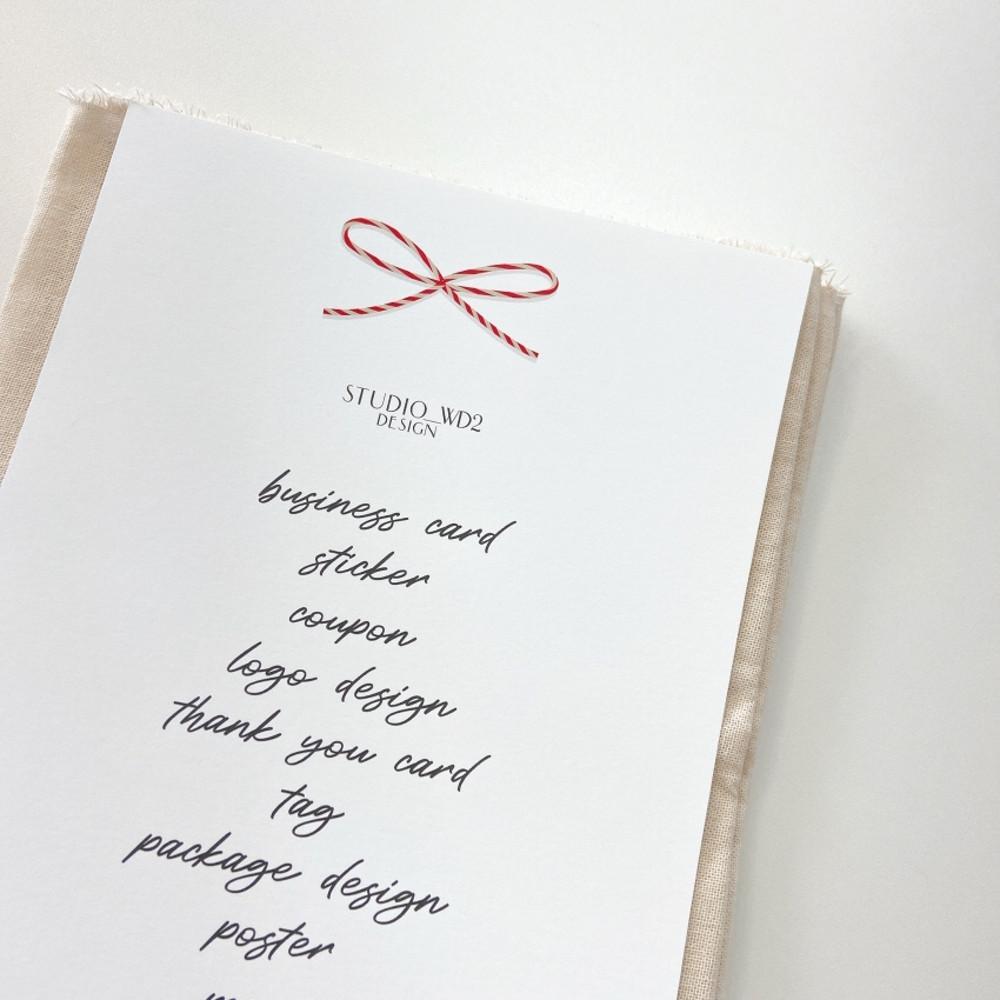 STUDIO_WD2
DESIGN
business card
sticker
coupon
logo design
thank you card
tag
package design
poster